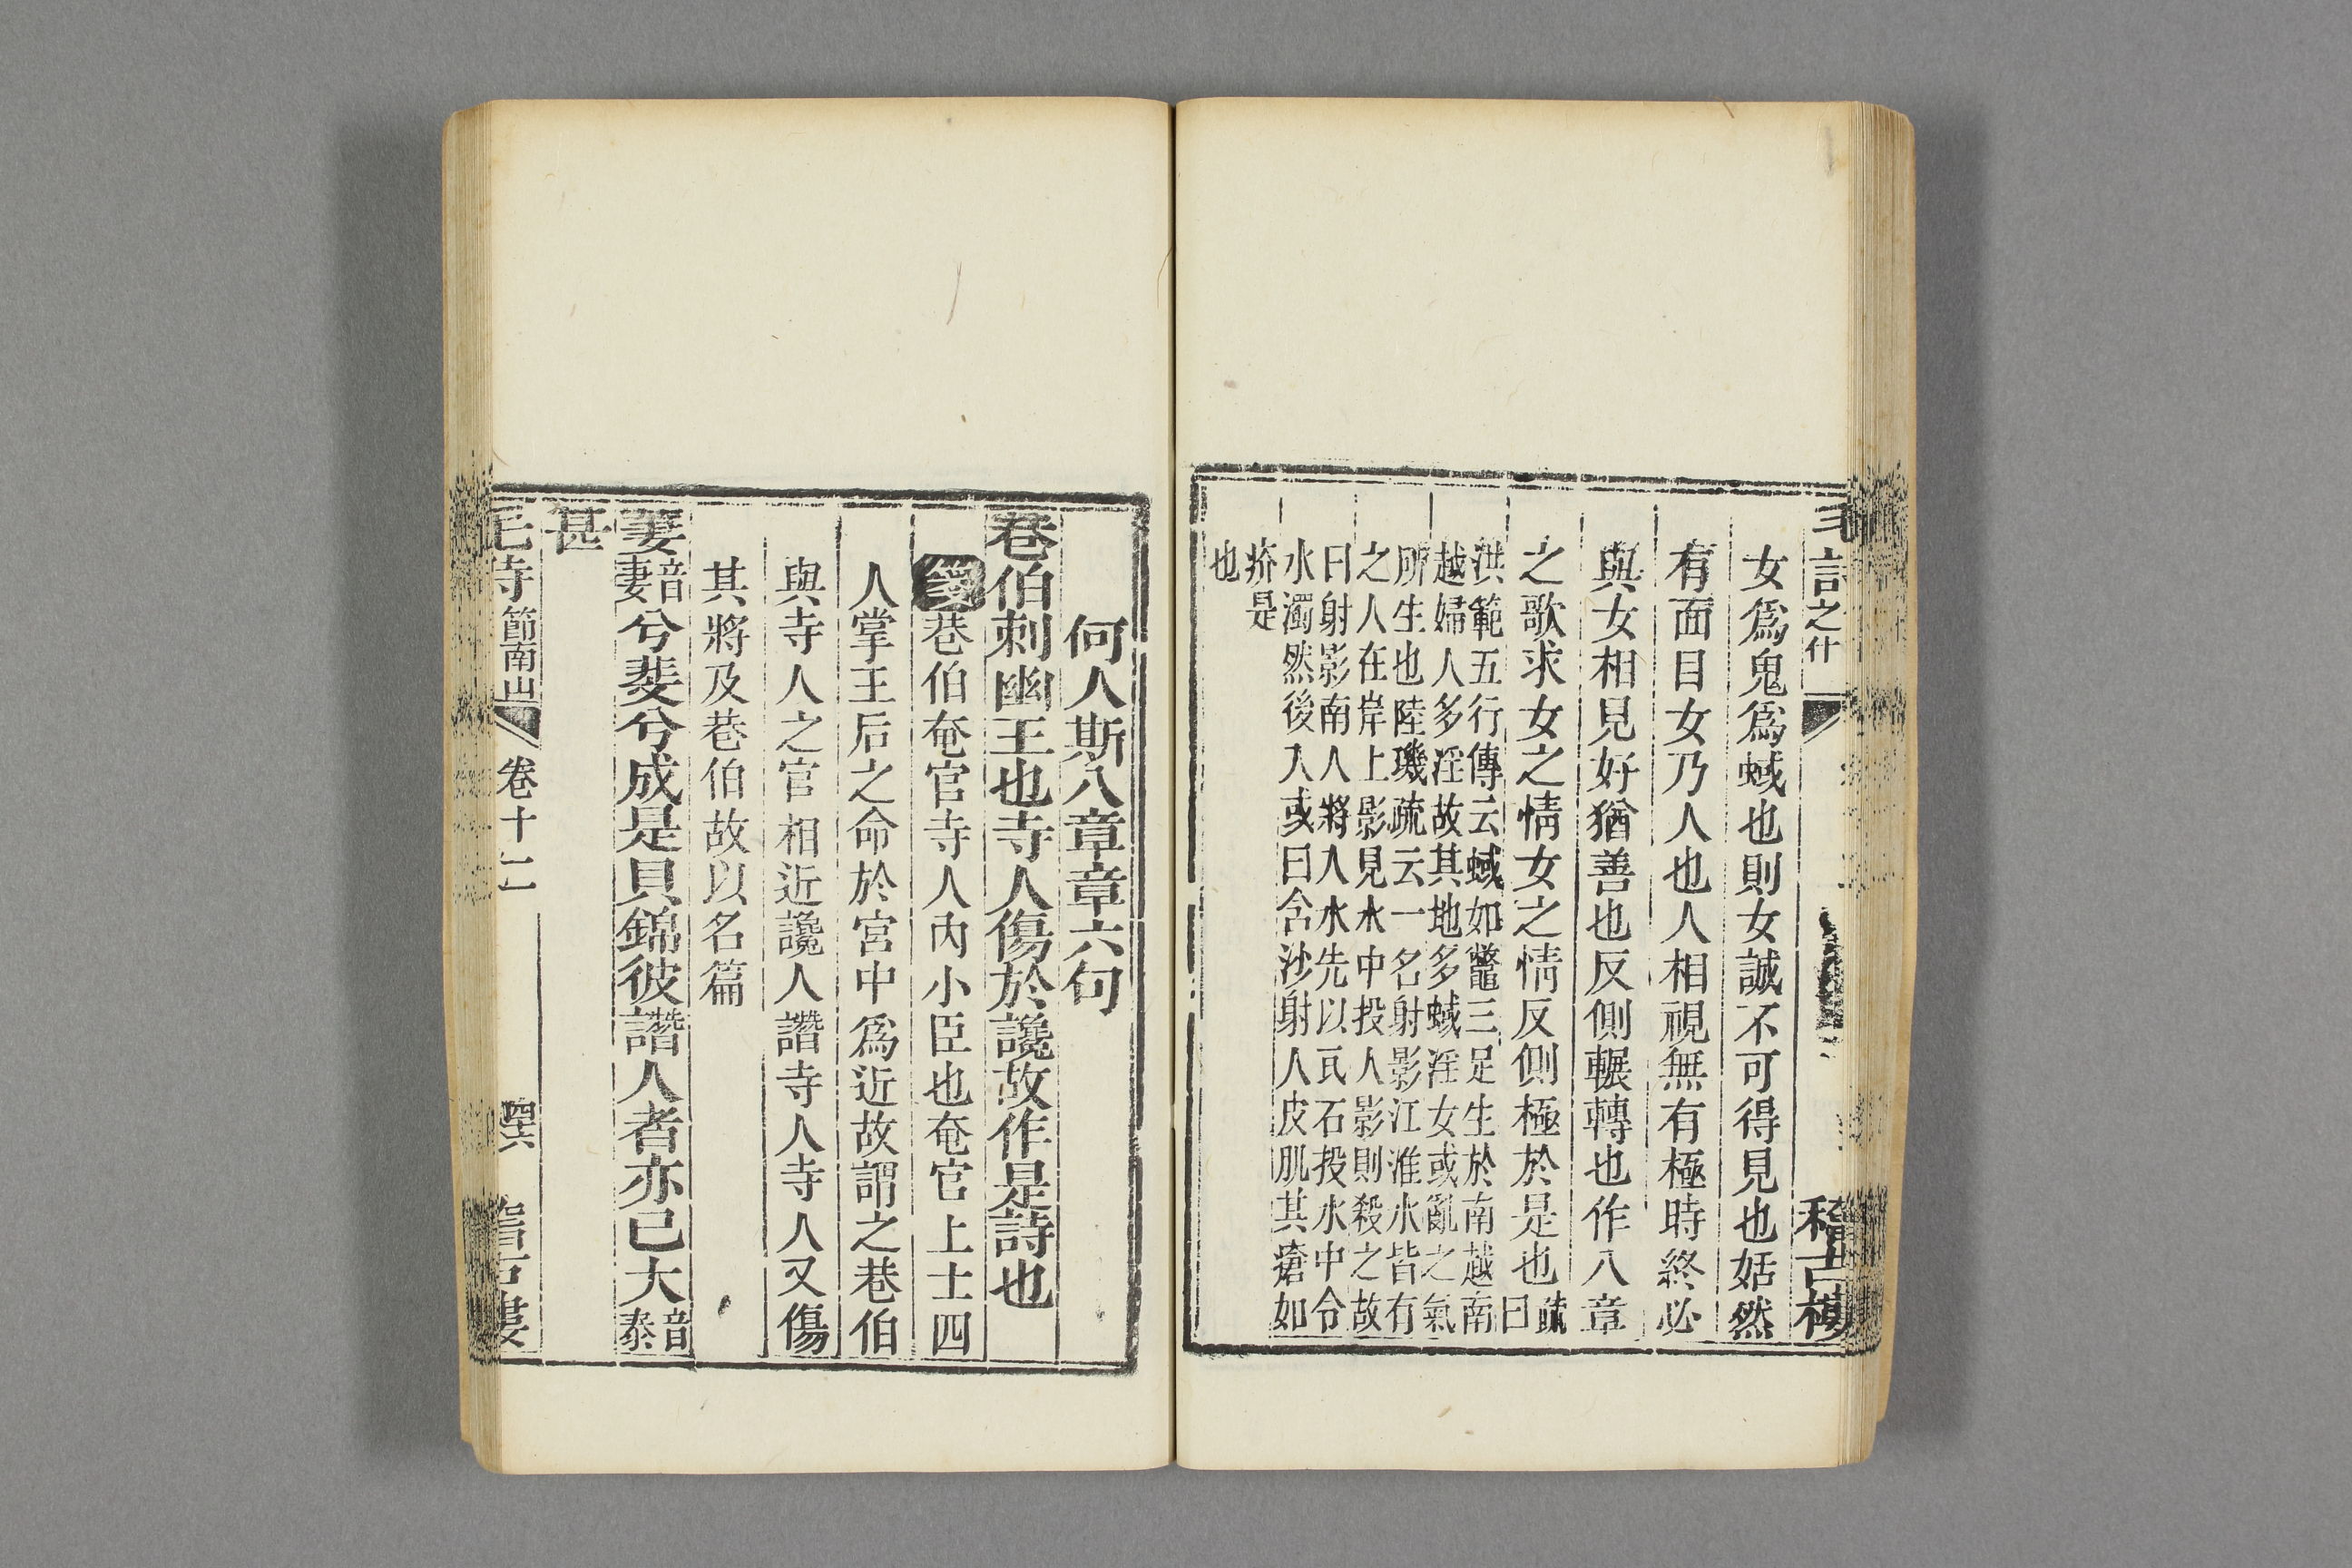 詩之什
稽古樓
女爲鬼爲蜮也則女誠不可得見也姡然
有面目女乃人也人相視無有極時終必
與女相見好猶善也反側輾轉也作八章
之歌求女之情女之情反側極於是也疏曰
洪範五行傳云蜮如鼈三足生於南越南
越婦人多淫故其地多蜮淫女或亂之氣
所生也陸璣疏云一名射影江淮水皆有
之人在岸上影見水中投人影則殺之故
曰射影南人將入水先以瓦石投水中令
水濁然後入或曰含沙射人皮肌其瘡如
疥是
也
何人斯八章章六句
巷伯刺幽王也寺人傷於讒故作是詩也
箋巷伯奄官寺人內小臣也奄官上士四
人掌王后之命於宮中爲近故謂之巷伯
與寺人之官相近讒人譖寺人寺人又傷
其將及巷伯故以名篇
萋音妻兮斐兮成是貝錦彼譖人者亦已大音泰
甚
毛詩節南山 卷十二 四六 稽古樓